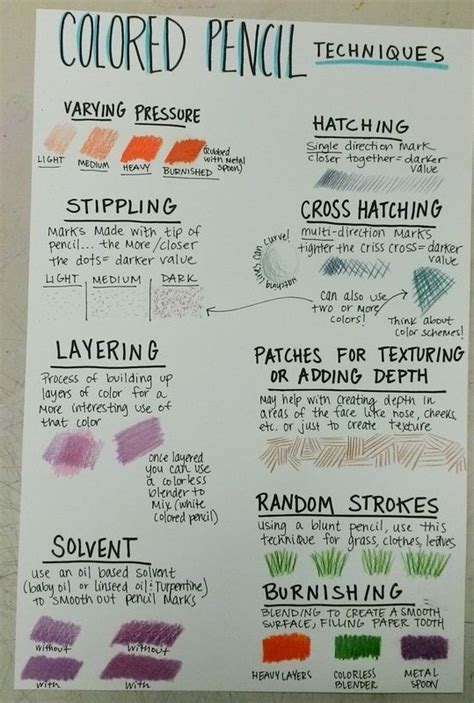 COLORED PENCIL TECHNIQUES
VARYING PRESSURE
LIGHT
MEDIUM
HEAVY
BURNISHED
(Rubbed
with Metal
Spoon)
STIPPLING
Marks Made with tip of
pencil... the More/closer
the dots= darker value
LIGHT
MEDIUM
DARK
LAYERING
Process of building up
layers of color for a
More interesting use of
that color
once layered
you can use
a colorless
blender to
Mix (white
colored pencil)
SOLVENT
use an oil based solvent
(baby oil or linseed oil! Turpentine)
to smooth out pencil Marks
without
without
with
with
HATCHING
Single direction mark
closer together= darker
value
CROSS HATCHING
multi-direction Marks
tighter the criss cross= darker
value
Hatching lines can curve!
can also use
two or more
colors!
Think about
color schemes!
PATCHES FOR TEXTURING
OR ADDING DEPTH
May help with creating depth in
areas of the face like nose, cheeks,
etc. or just to create texture
RANDOM STROKES
using a blunt pencil, use this
technique for grass, clothes, leaves
BURNISHING
BLENDING TO CREATE A SMOOTH
SURFACE, FILLING PAPER TOOTH
HEAVY LAYERS
COLORLESS
BLENDER
METAL
SPOON